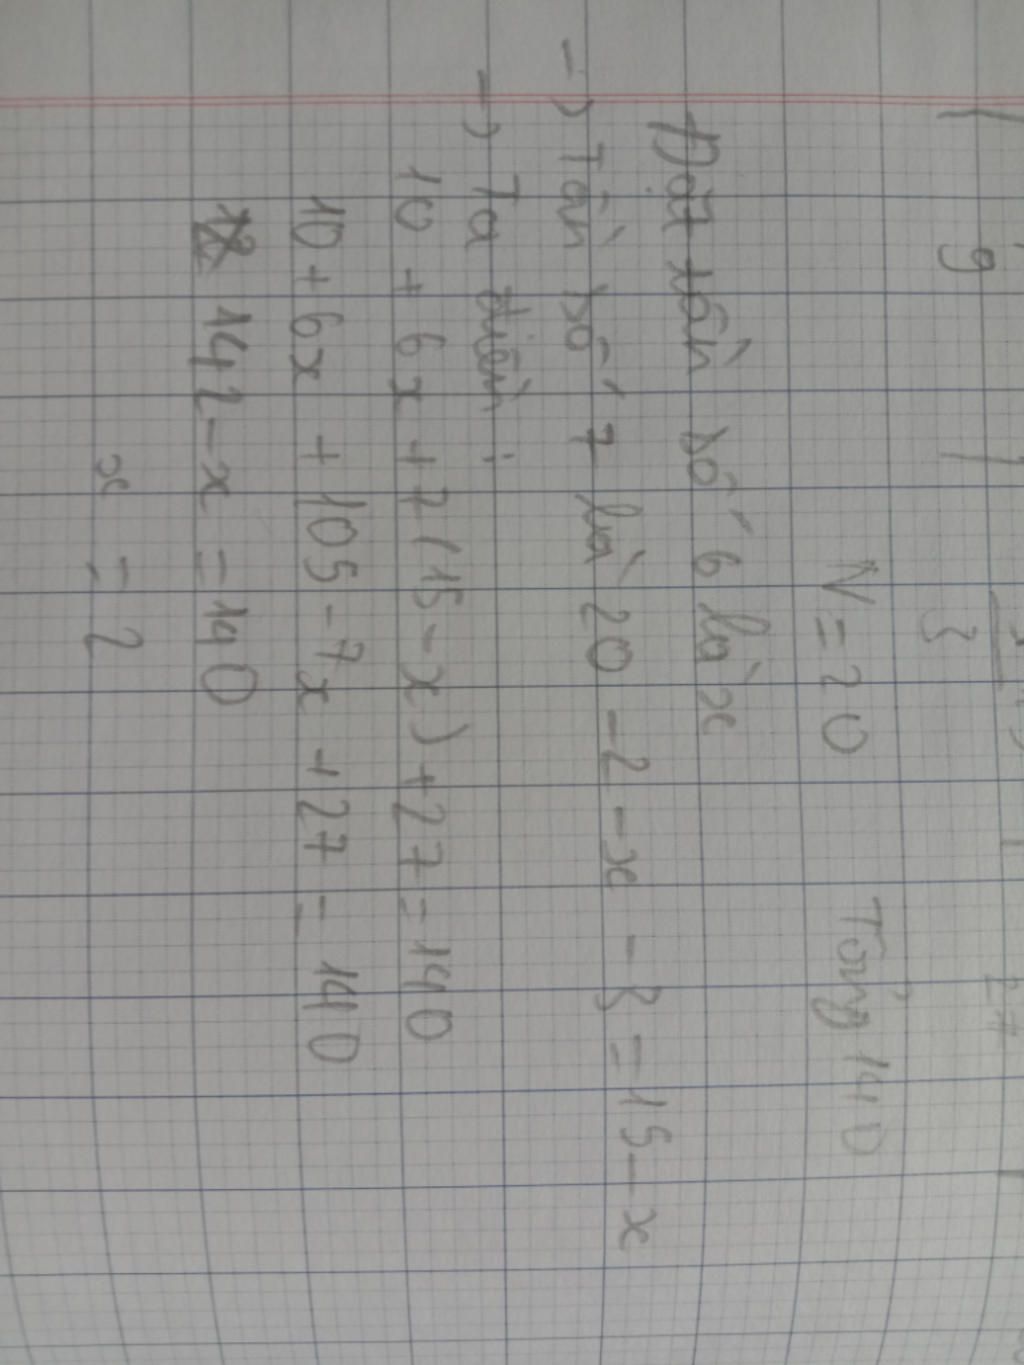 9 3 27
N = 20 Tổng 140
Đặt tần số 6 là x
-> Tần số 7 là 20 - 2 - x - 3 = 15 - x
-> Ta điền :
10 + 6x + 7(15 - x) + 27 = 140
10 + 6x + 105 - 7x + 27 = 140
142 - x = 140
x = 2